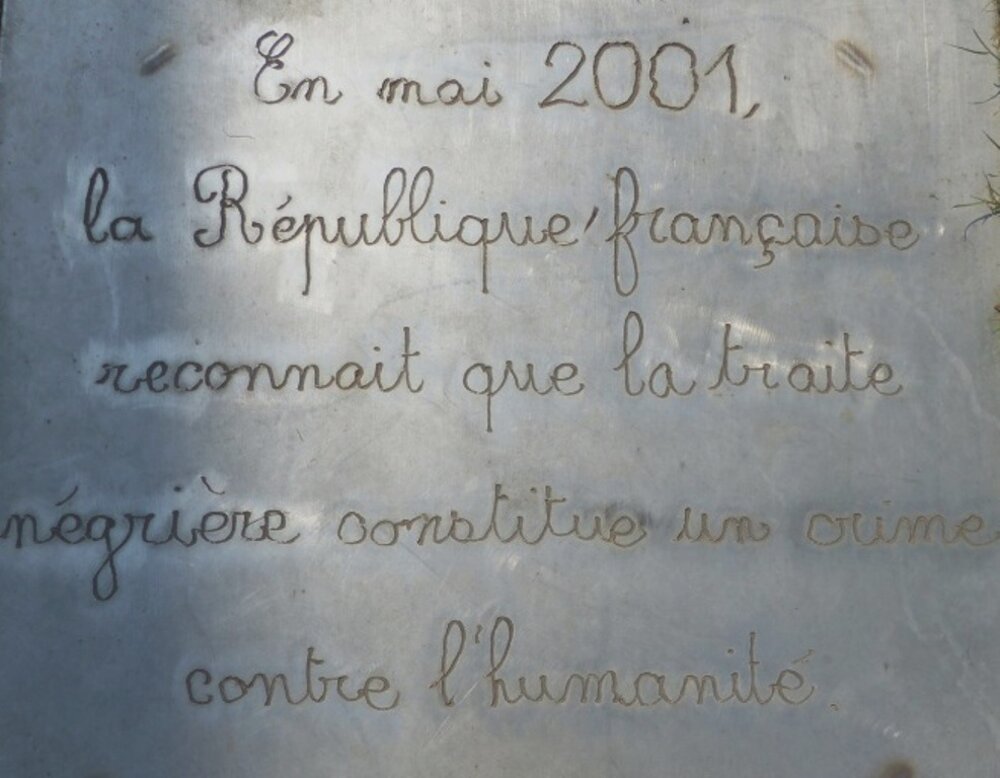 En mai 2001,
la République française
reconnait que la traite
négrière constitue un crime
contre l'humanité.